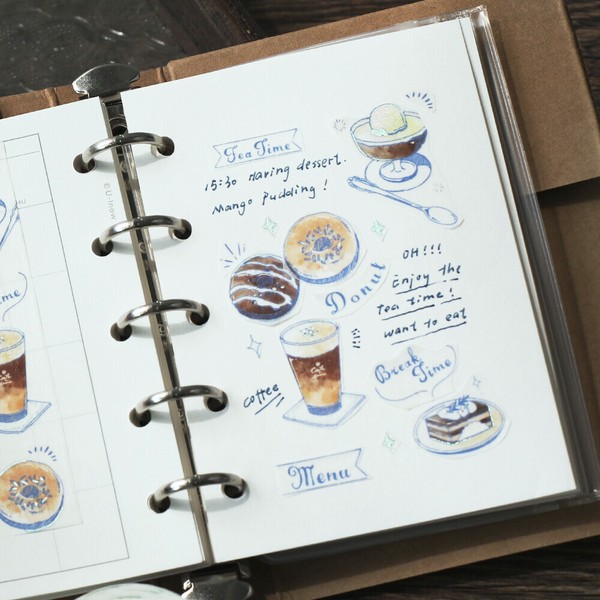 Tea Time
15:30 Maring dessert.
Mango Pudding!
OH!!!
Enjoy the
Tea time!
want to eat
Donut
Break
Time
coffee
Menu